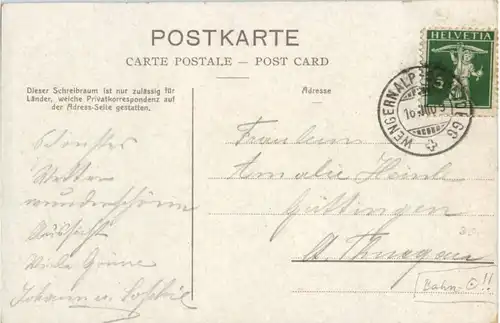 POSTKARTE
CARTE POSTALE – POST CARD
Dieser Schreibraum ist nur zulässig für
Länder, welche Privatkorrespondenz auf
der Adress-Seite gestatten.
Adresse
HELVETIA
5
WENGERNALP
EGG
Schönstes
Wetter
wunderschöne
Aussicht
Viele Grüsse
Johann u.
Fräulein
Amalie
Güttingen
Kt. Thurgau
Bahn-O!!